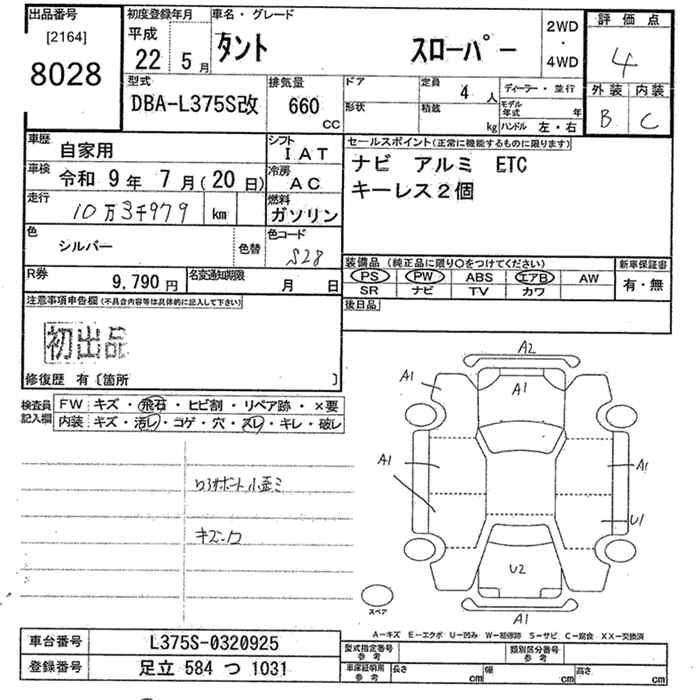 出品番号
[2164]
8028
初度登録年月
平成
22 5月
車名・グレード
タント スローパー
2WD
・
4WD
評価点
4
外装 内装
B C
型式
DBA-L375S改
排気量
660
cc
ドア
形状
定員
4 人
積載
kg
ディーラー・並行
モデル年式 年
ハンドル 左・右
車歴
自家用
シフト
IAT
車検
令和 9年 7月(20日)
冷房
AC
走行
10万3千979 km
燃料
ガソリン
色
シルバー
色替
色コード
S28
R券
9,790円
名変通知期限
月 日
セールスポイント(正常に機能するものに限ります)
ナビ アルミ ETC
キーレス2個
装備品(純正品に限り○をつけてください)
PS PW ABS エアB AW
SR ナビ TV カワ
新車保証書
有・無
後日品
注意事項申告欄(不具合内容等は具体的に記入して下さい)
初出品
修復歴 有〔箇所 〕
検査員
記入欄
FW キズ・飛石・ヒビ割・リペア跡・×要
内装 キズ・汚レ・コゲ・穴・スレ・キレ・破レ
小歪ミ
A2
A1
A1
A1
A1
U1
U2
A1
スペア
A-キズ E-エクボ U-凹み W-補修跡 S-サビ C-腐食 XX-交換済
車台番号
L375S-0320925
登録番号
足立 584 つ 1031
型式指定番号
参考
類別区分番号
参考
車庫証明用
参考
長さ cm
幅 cm
高さ cm